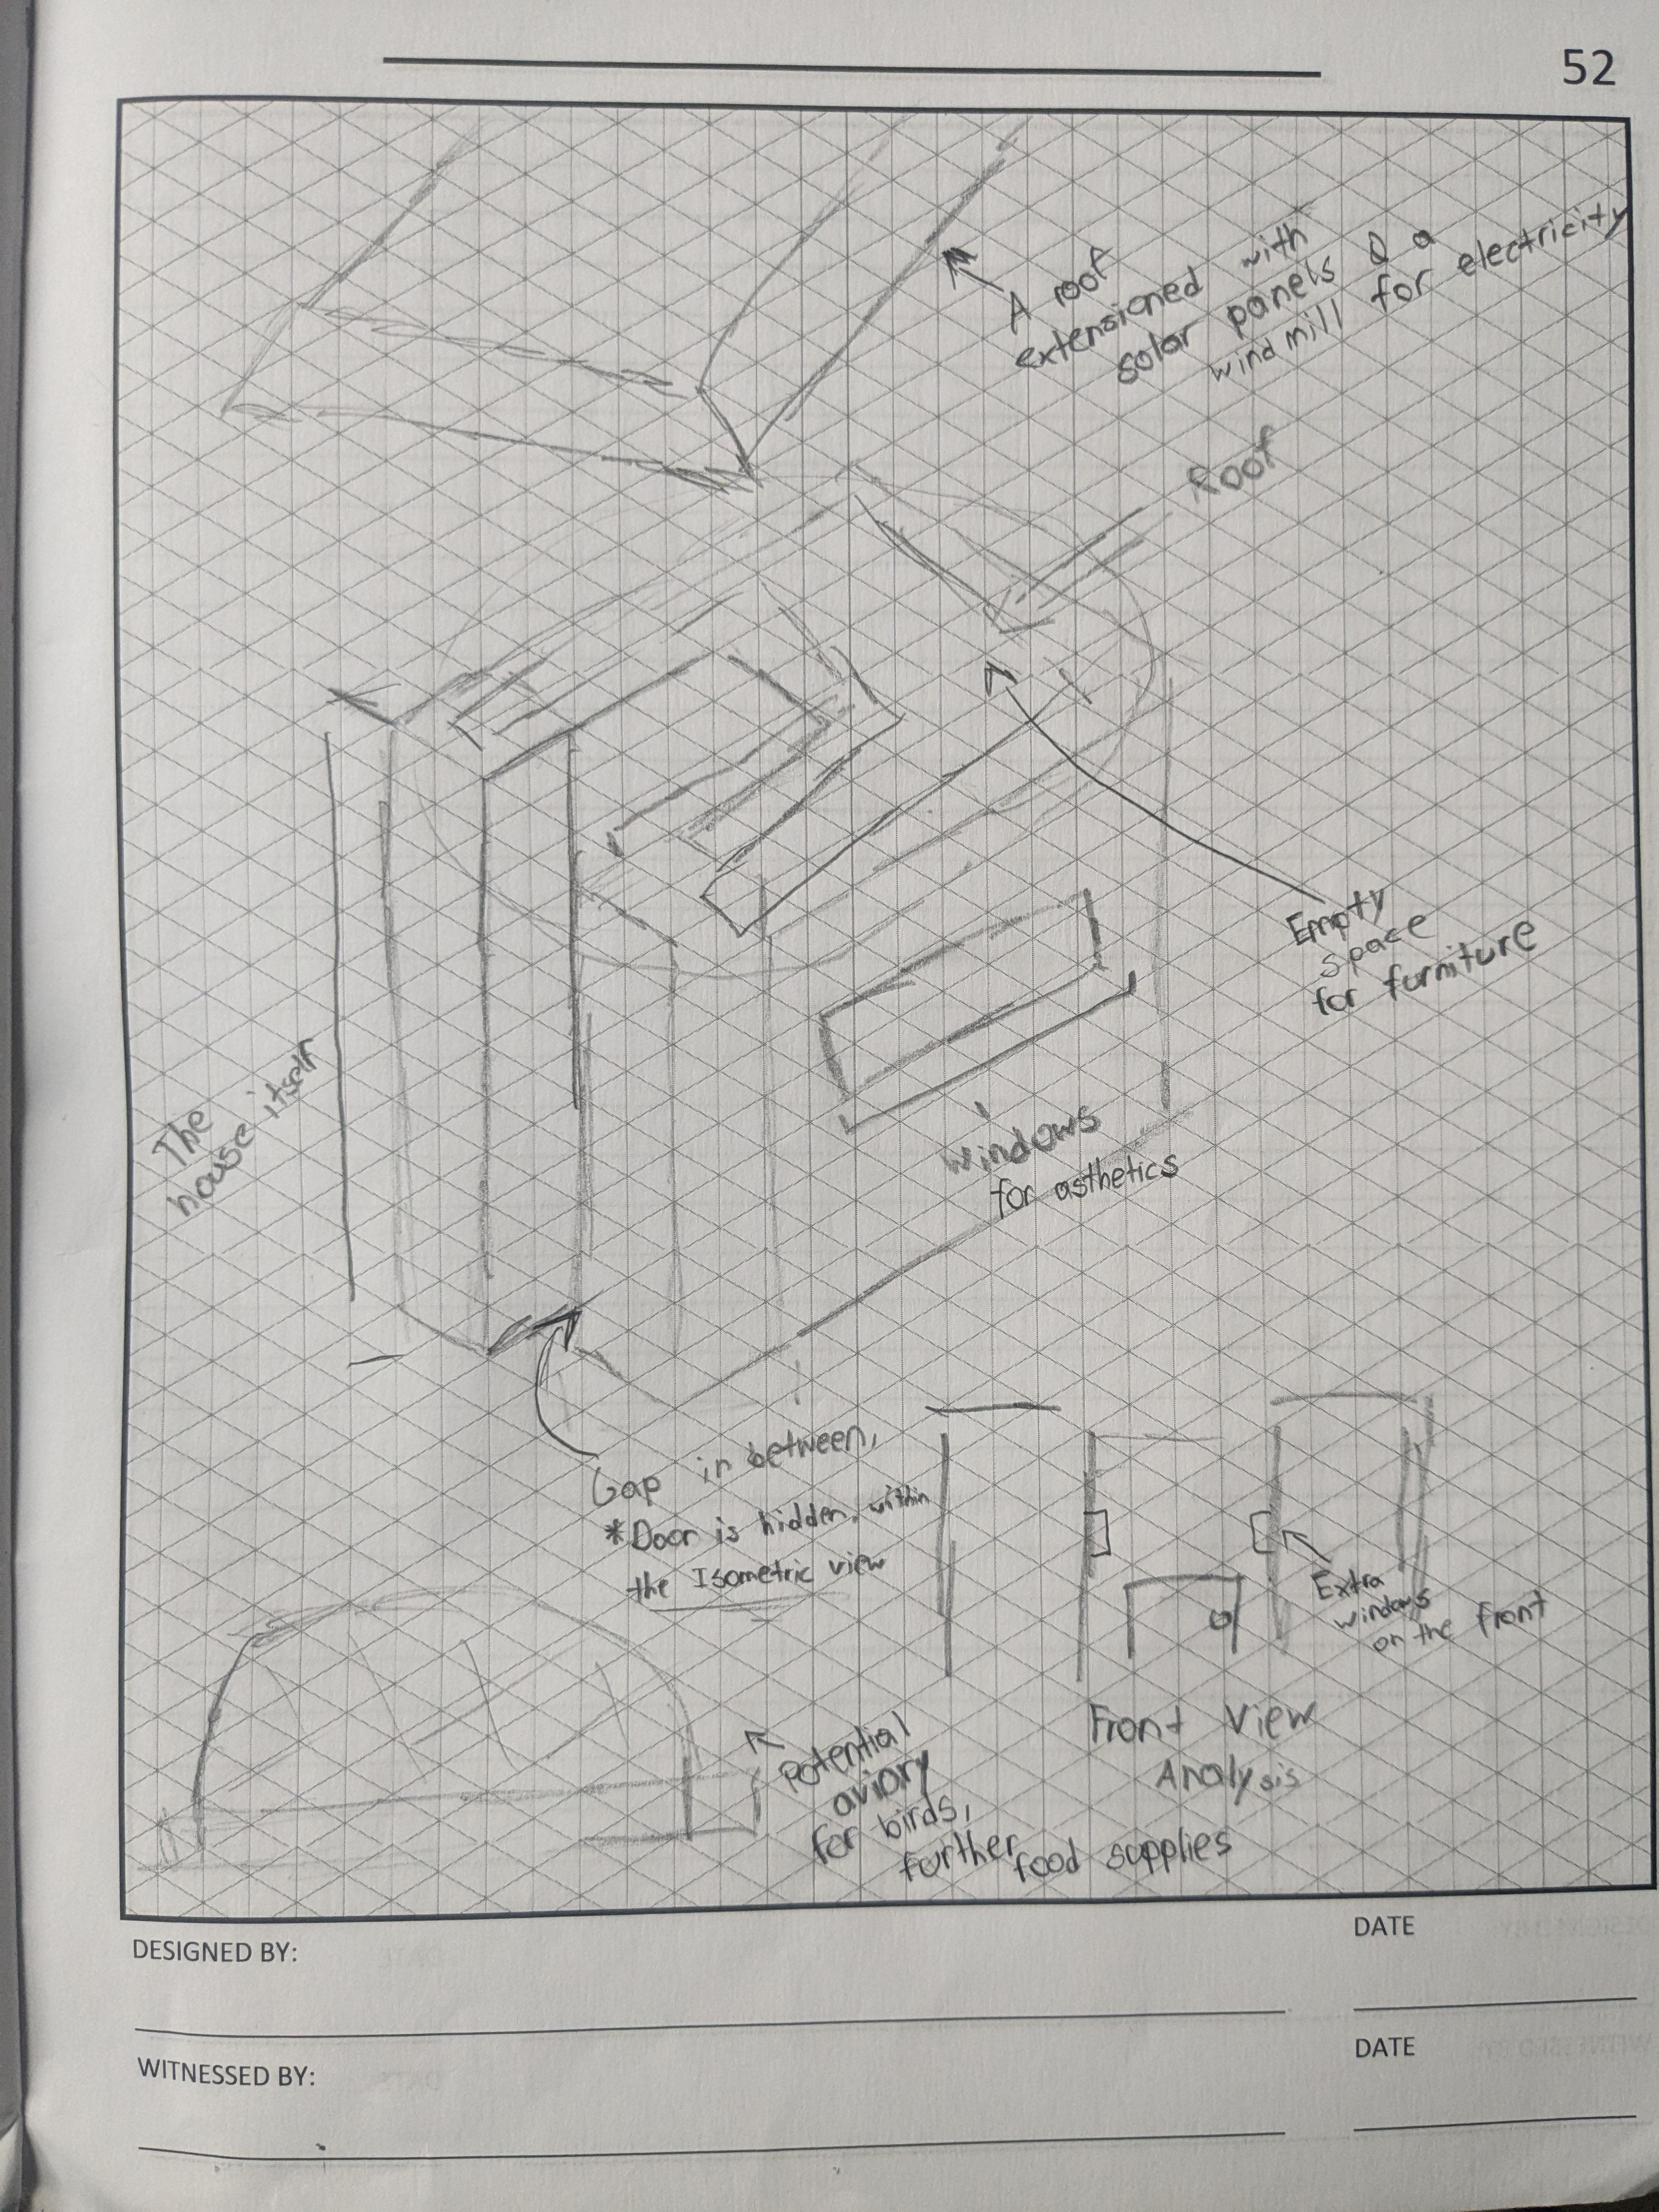 52
A roof
extensioned with
solar panels & a
wind mill for electricity
Roof
Empty
space
for furniture
The
house itself
windows
for asthetics
Gap in between,
*Door is hidden, within
the Isometric view
Extra
windows
on the front
Front View
Analysis
Potential
aviary
for birds,
further food supplies
DESIGNED BY:
DATE
WITNESSED BY:
DATE